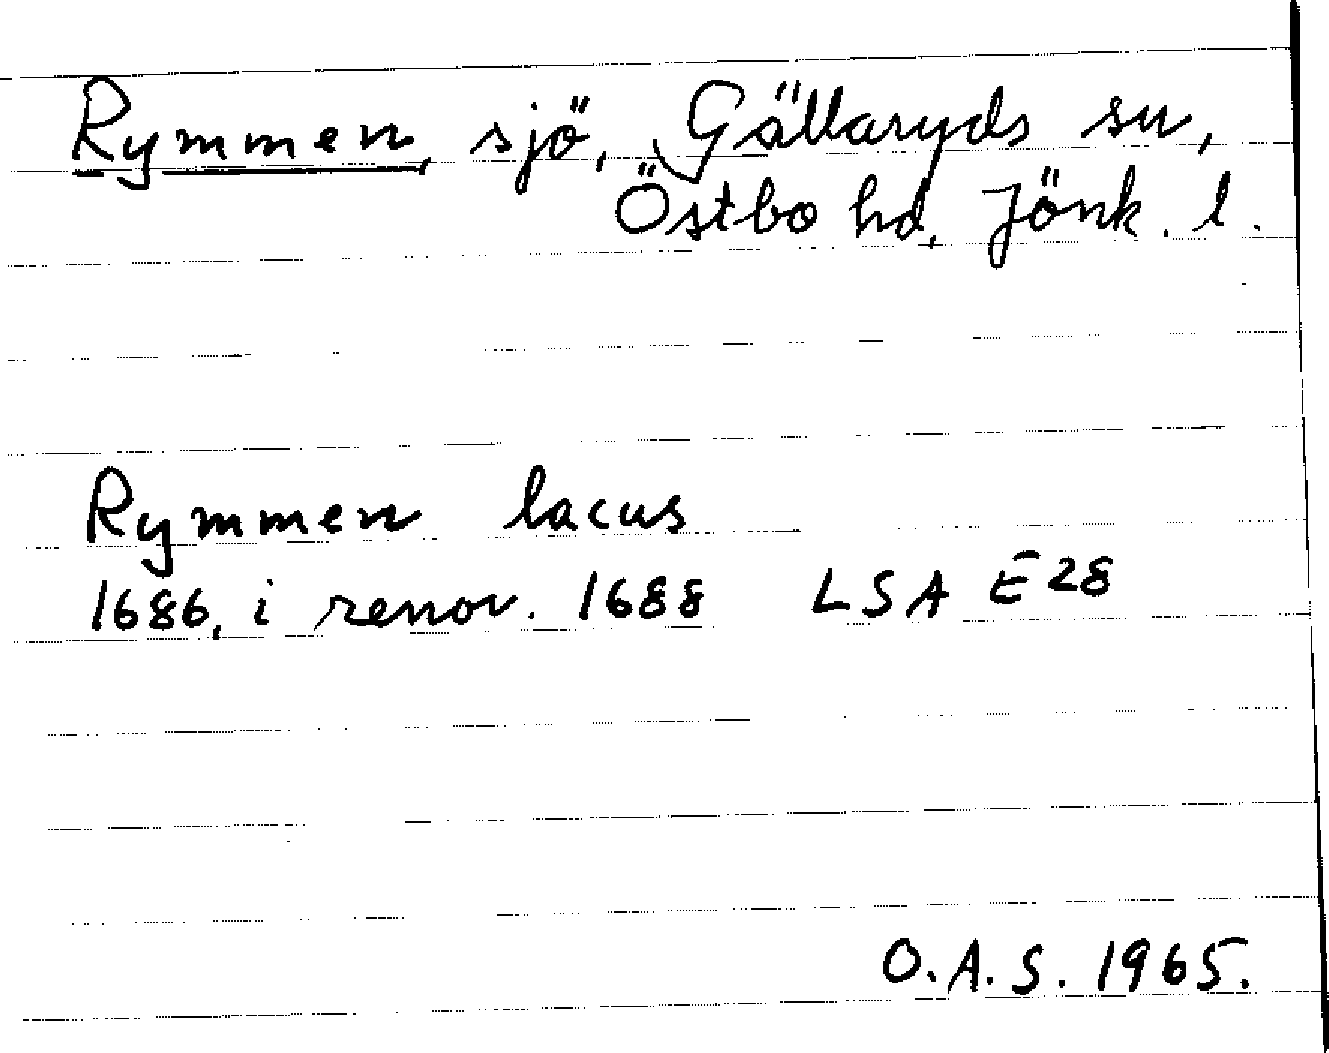 Rymmen, sjö, Gällaryds sn,
Östbo hd, Jönk. l.
Rymmen lacus
1686, i renov. 1688 LSA E28
O.A.S. 1965.